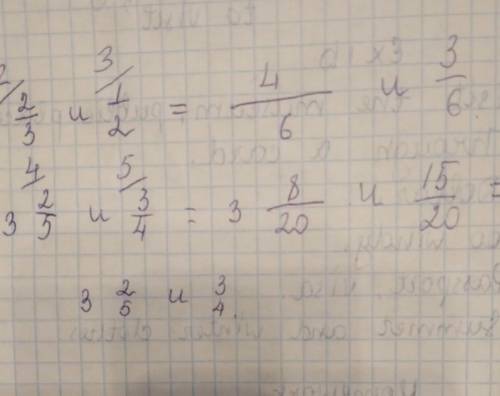 2/ 2/3 и 3/ 1/2 = 4/6 и 3/6
4/ 3 2/5 и 5/ 3/4 = 3 8/20 и 15/20 =
3 2/5 и 3/4